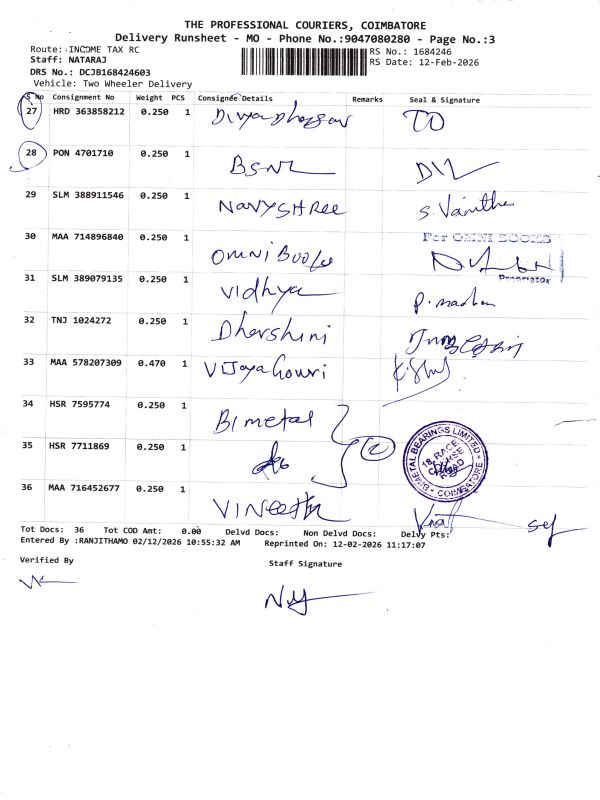 THE PROFESSIONAL COURIERS, COIMBATORE
Delivery Runsheet - MO - Phone No.:9047080280 - Page No.:3
Route: INCOME TAX RC
RS No.: 1684246
Staff: NATARAJ
RS Date: 12-Feb-2026
DRS No.: DCJB168424603
Vehicle: Two Wheeler Delivery
S No Consignment No Weight PCS Consignee Details Remarks Seal & Signature
27 HRD 363858212 0.250 1
28 PON 4701710 0.250 1 BSNL
29 SLM 388911546 0.250 1 NavyShree S. Vanitha
30 MAA 714896840 0.250 1 OMNi Books For OMNI BOOKS
Proprietor
31 SLM 389079135 0.250 1 Vidhya
32 TNJ 1024272 0.250 1 Dharshini
33 MAA 578207309 0.470 1 VijayaGowri
34 HSR 7595774 0.250 1 Bimetal
35 HSR 7711869 0.250 1 BIMETAL BEARINGS LIMITED COIMBATORE
36 MAA 716452677 0.250 1 VINeeth
Self
Tot Docs: 36 Tot COD Amt: 0.00 Delvd Docs: Non Delvd Docs: Delvy Pts:
Entered By :RANJITHAMO 02/12/2026 10:55:32 AM Reprinted On: 12-02-2026 11:17:07
Verified By
Staff Signature